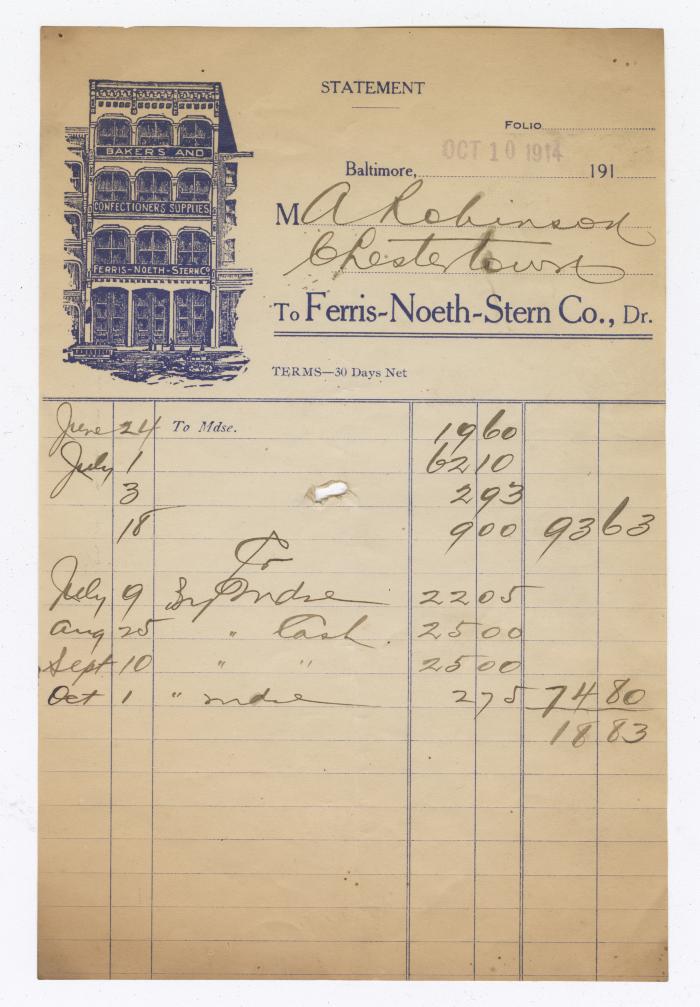 STATEMENT
FOLIO
Baltimore, OCT 10 1914 191
M A Robinson
Chestertown
To Ferris-Noeth-Stern Co., Dr.
TERMS—30 Days Net
BAKERS AND
CONFECTIONERS SUPPLIES
FERRIS-NOETH-STERN CO
June 24 To Mdse. 19 60
July 1 62 10
3 2 93
18 9 00 93 63
Cr
July 9 By Mdse 22 05
Aug 25 " Cash. 25 00
Sept 10 " " 25 00
Oct 1 " mdse 2 75 74 80
18 83